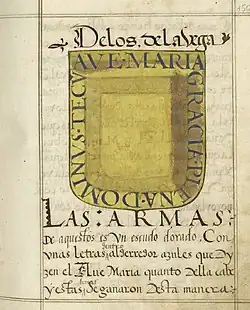 De los. de la Vega
AVE MARIA GRACIA PLENA DOMINVS TECV
LAS : ARMAS :
De aquestos es Vn escudo dorado, Con
vnas letras, dentro al derredor azules que Dy
zen el Aue Maria quanto della cabe
y estas se ganaron Desta manera